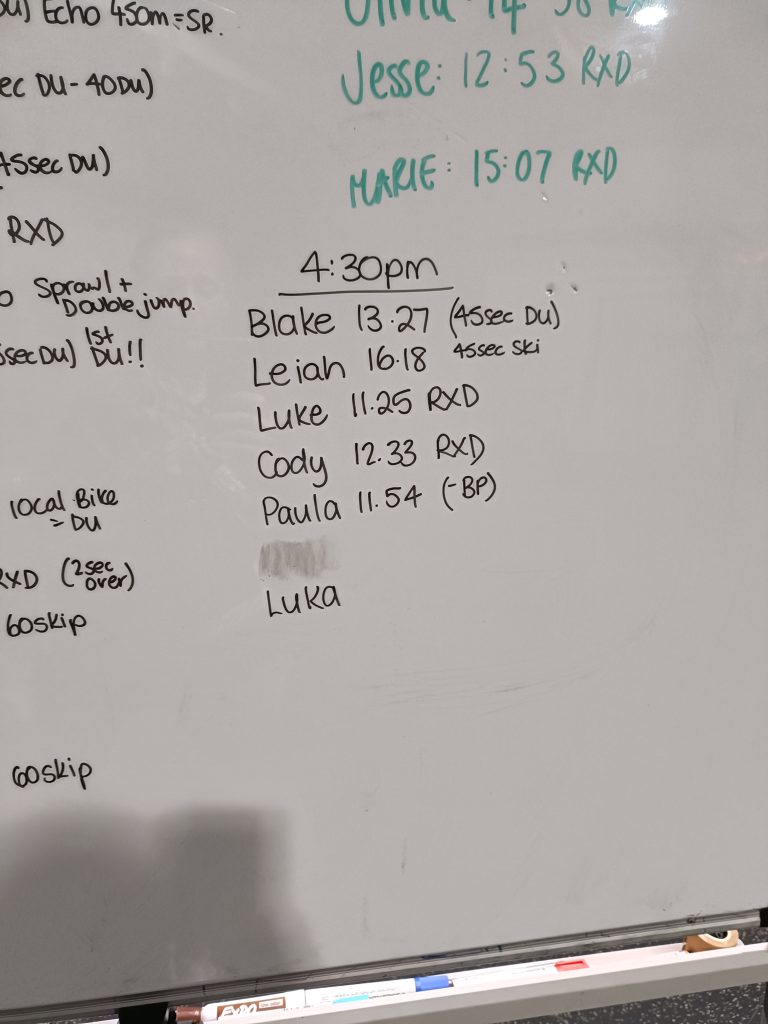 Echo 450m = SR.
DU - 40DU)
45sec DU)
RXD
Sprawl +
Double jump.
DU) 1st
DU!!
10cal Bike
= DU
RXD (2sec
over)
60skip
60skip
Jesse: 12:53 RXD
MARIE: 15:07 RXD
4:30pm
Blake 13.27 (45sec DU)
Leiah 16.18 45sec Ski
Luke 11.25 RXD
Cody 12.33 RXD
Paula 11.54 (-BP)
Luka
EXPO